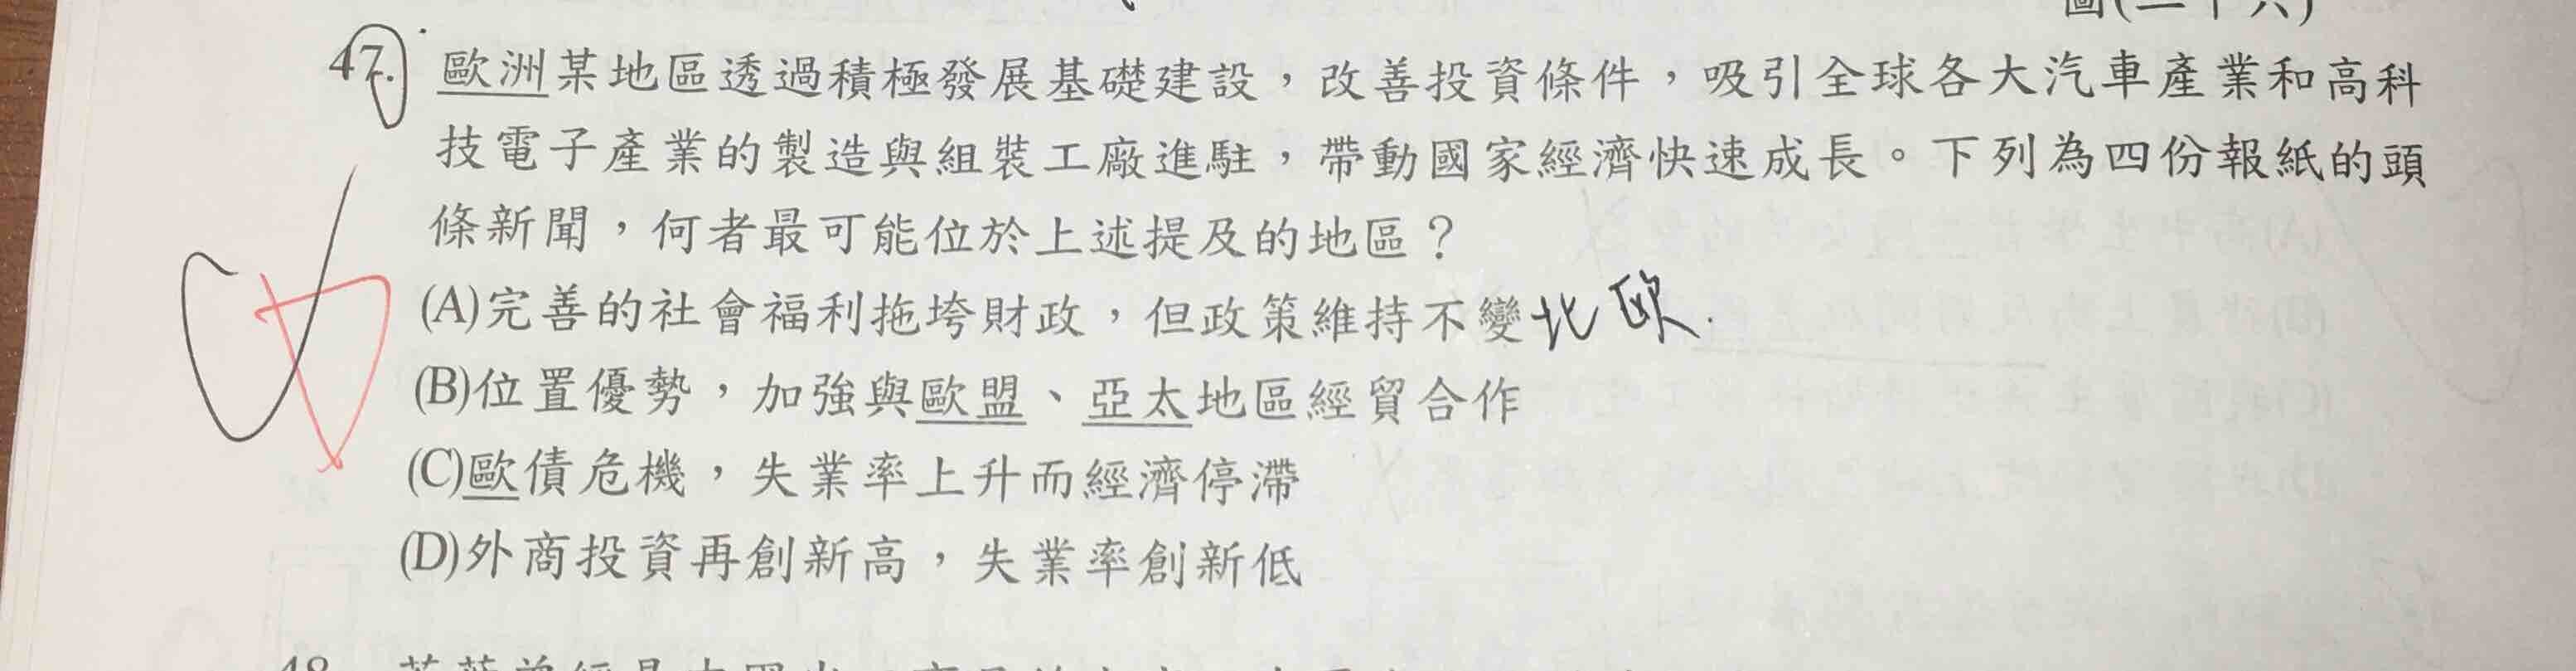 圖(二十六)
47. 歐洲某地區透過積極發展基礎建設，改善投資條件，吸引全球各大汽車產業和高科
技電子產業的製造與組裝工廠進駐，帶動國家經濟快速成長。下列為四份報紙的頭
條新聞，何者最可能位於上述提及的地區？
(A)完善的社會福利拖垮財政，但政策維持不變 北歐.
(B)位置優勢，加強與歐盟、亞太地區經貿合作
(C)歐債危機，失業率上升而經濟停滯
(D)外商投資再創新高，失業率創新低
48.